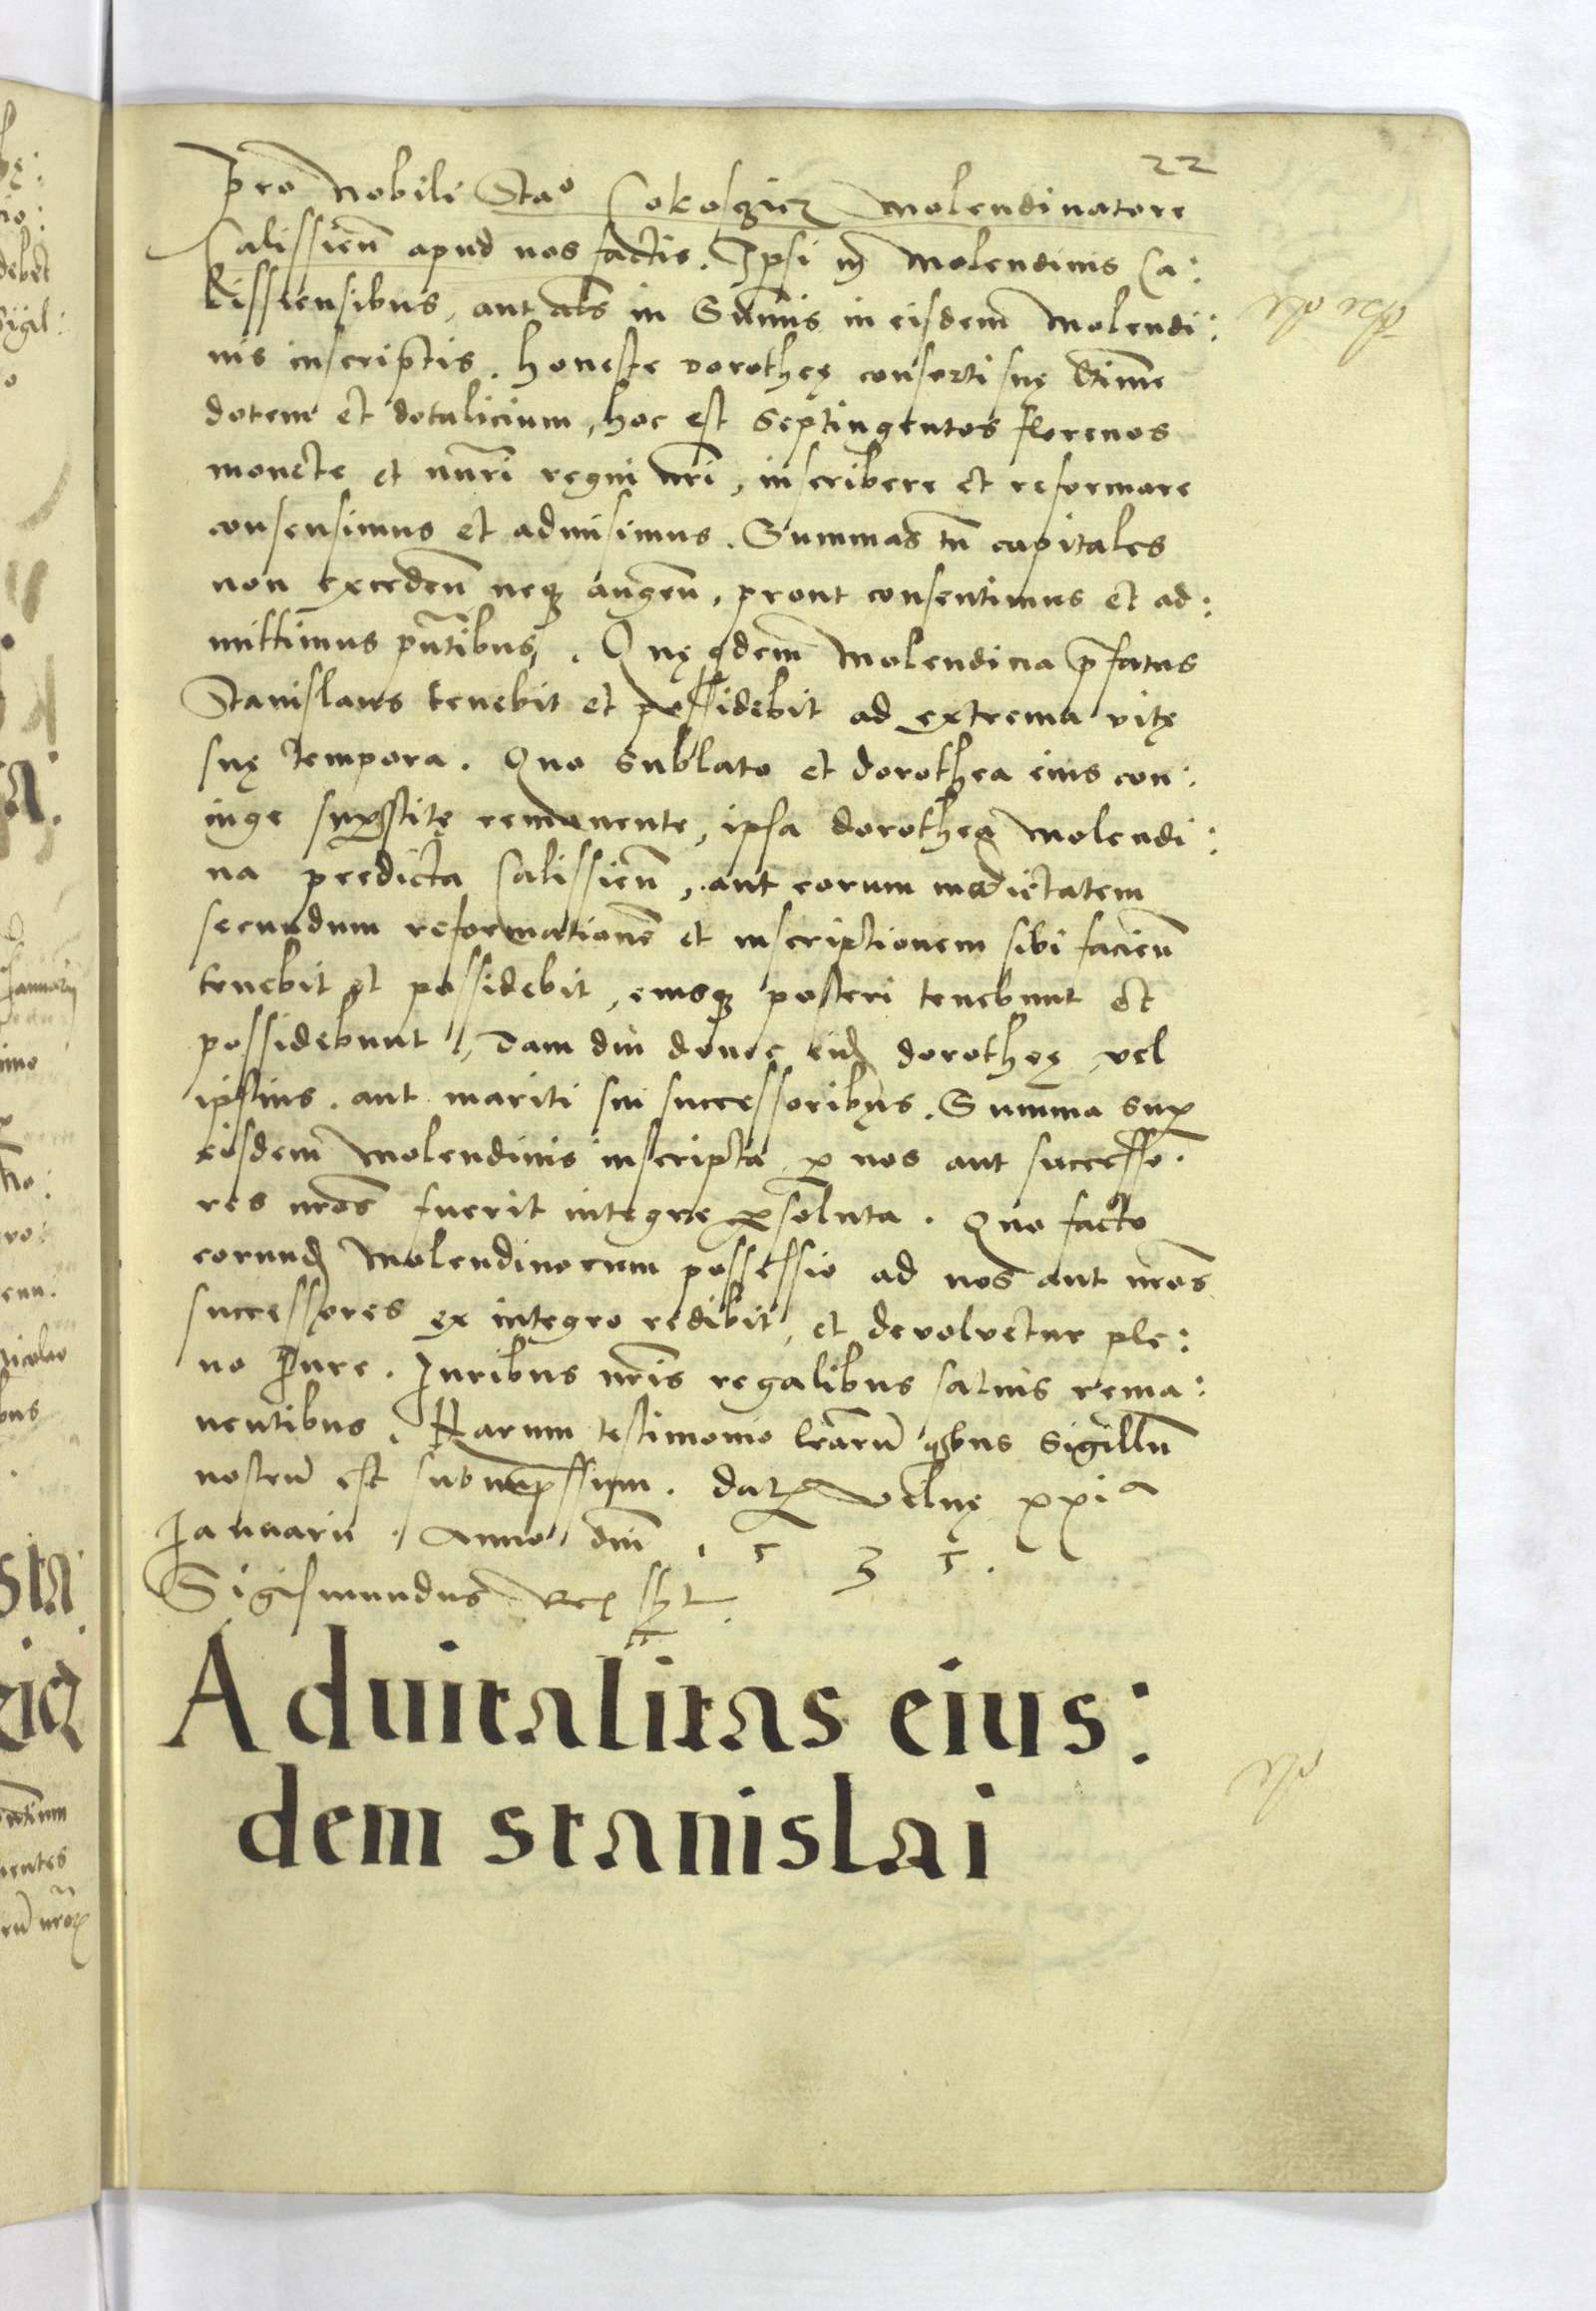 22
pro Nobili Stao Cokoſzicz Molendinatore
Calissien̄ apud nos factis. Ipsi in Molendinis Ca:
lissiensibus, aut als in Sum̄is in eisdem Molendi:
nis inscriptis. Honeste Dorotheę consorti suę
dotem et dotalicium, hoc est Septingentos florenos
monete et nūri regni nri, inscribere et reformare
consensimus et admisimus. Summas tn̄ capitales
non exceden̄ neqꝫ augen̄, prout consentimus et ad:
mittimus pn̄tibus. Quę qdem Molendina p̄fatus
Stanislaus tenebit et possidebit ad extrema vitę
suę tempora. Quo sublato et dorothea eius con:
iuge suꝑstitę remanente, ipsa dorothea Molendi:
na predicta Calissien̄, aut eorum medietatem
secundum reformationē et inscriptionem sibi facien̄
tenebit et possidebit, eiusqꝫ posteri tenebunt et
possidebunt, Tam diu donec eid dorotheę vel
ipsius aut mariti sui successoribus. Summa suꝑ
eisdem Molendinis inscripta ꝑ nos aut successo:
res nr̄os fuerit integre ꝑsoluta. Quo facto
eorund Molendinorum possessio ad nos aut nr̄os
successores ex integro redibit, et devolvetur ple:
no Iure. Iuribus nr̄is regalibus salvis rema:
nentibus. Harum testimonio lr̄arū qbus Sigillū
nostrū est subimp̄ssum. Datꝝ Vilnę xxia
Ianuarii Anno dn̄i 1535.
Sigismundus Rex sszt
Advitalitas eius:
dem stanislai